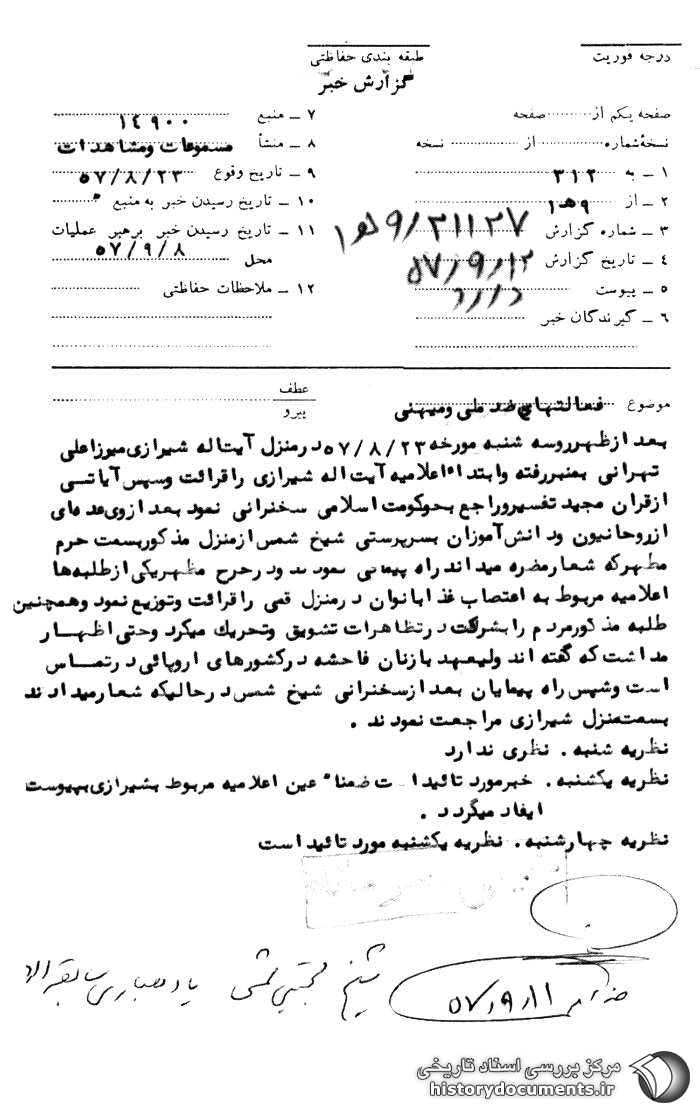 درجه فوریت
طبقه بندی حفاظتی
گزارش خبر
صفحه یکم از ........ صفحه
نسخهٔ شماره ........ از ........ نسخه
۱ ـ به ۳۱۲
۲ ـ از ۹ ه‍ ۱
۳ ـ شماره گزارش ۹/۲۱۱۲۷ ه‍ ۱
۴ ـ تاریخ گزارش ۵۷/۹/۱۲
۵ ـ پیوست دارد
۶ ـ گیرندگان خبر
۷ ـ منبع ۱۴۹۰۰
۸ ـ منشأ مسموعات ومشاهدات
۹ ـ تاریخ وقوع ۵۷/۸/۲۳
۱۰ ـ تاریخ رسیدن خبر به منبع
۱۱ ـ تاریخ رسیدن خبر برهبر عملیات
محل ۵۷/۹/۸
۱۲ ـ ملاحظات حفاظتی
موضوع فعالتهای ضد ملی ومیهنی
عطف
پیرو
بعد ازظهرروسه شنبه مورخه ۵۷/۸/۲۳ درمنزل آیت اله شیرازی میرزاعلی
تهرانی بمنبررفته وابتداء اعلامیه آیت اله شیرازی راقرائت وسپس آیاتی
ازقران مجید تفسیروراجع بحوکومت اسلامی سخنرانی نمود بعد ازوی عده ای
ازروحانیون ودانش آموزان بسرپرستی شیخ شمس ازمنزل مذکوربسمت حرم
مطهرکه شعارمضره میدادند راه پیمائی نمودند ودرحرح مطهریکی ازطلبه ها
اعلامیه مربوط به اعتصاب غذا بانوان درمنزل قمی راقرائت وتوزیع نمود وهمچنین
طلبه مذکورمردم رابشرکت درتظاهرات تشویق وتحریك میکرد وحتی اظهار
مداشت که گفته اند ولیعهد بازنان فاحشه درکشورهای اروپائی درتماس
است وشپس راه پیمایان بعد ازسخنرانی شیخ شمس درحالیکه شعارمیدادند
بسمت منزل شیرازی مراجعت نمودند .
نظریه شنبه . نظری ندارد
نظریه یکشنبه . خبرمورد تائید است ضمناً عین اعلامیه مربوط بشیرازی بپیوست
ایفاد میگردد .
نظریه چهارشنبه . نظریه یکشنبه مورد تائید است
۵۷/۹/۱۱
شیخ مجتبی شمسی
مرکز بررسی اسناد تاریخی
historydocuments.ir